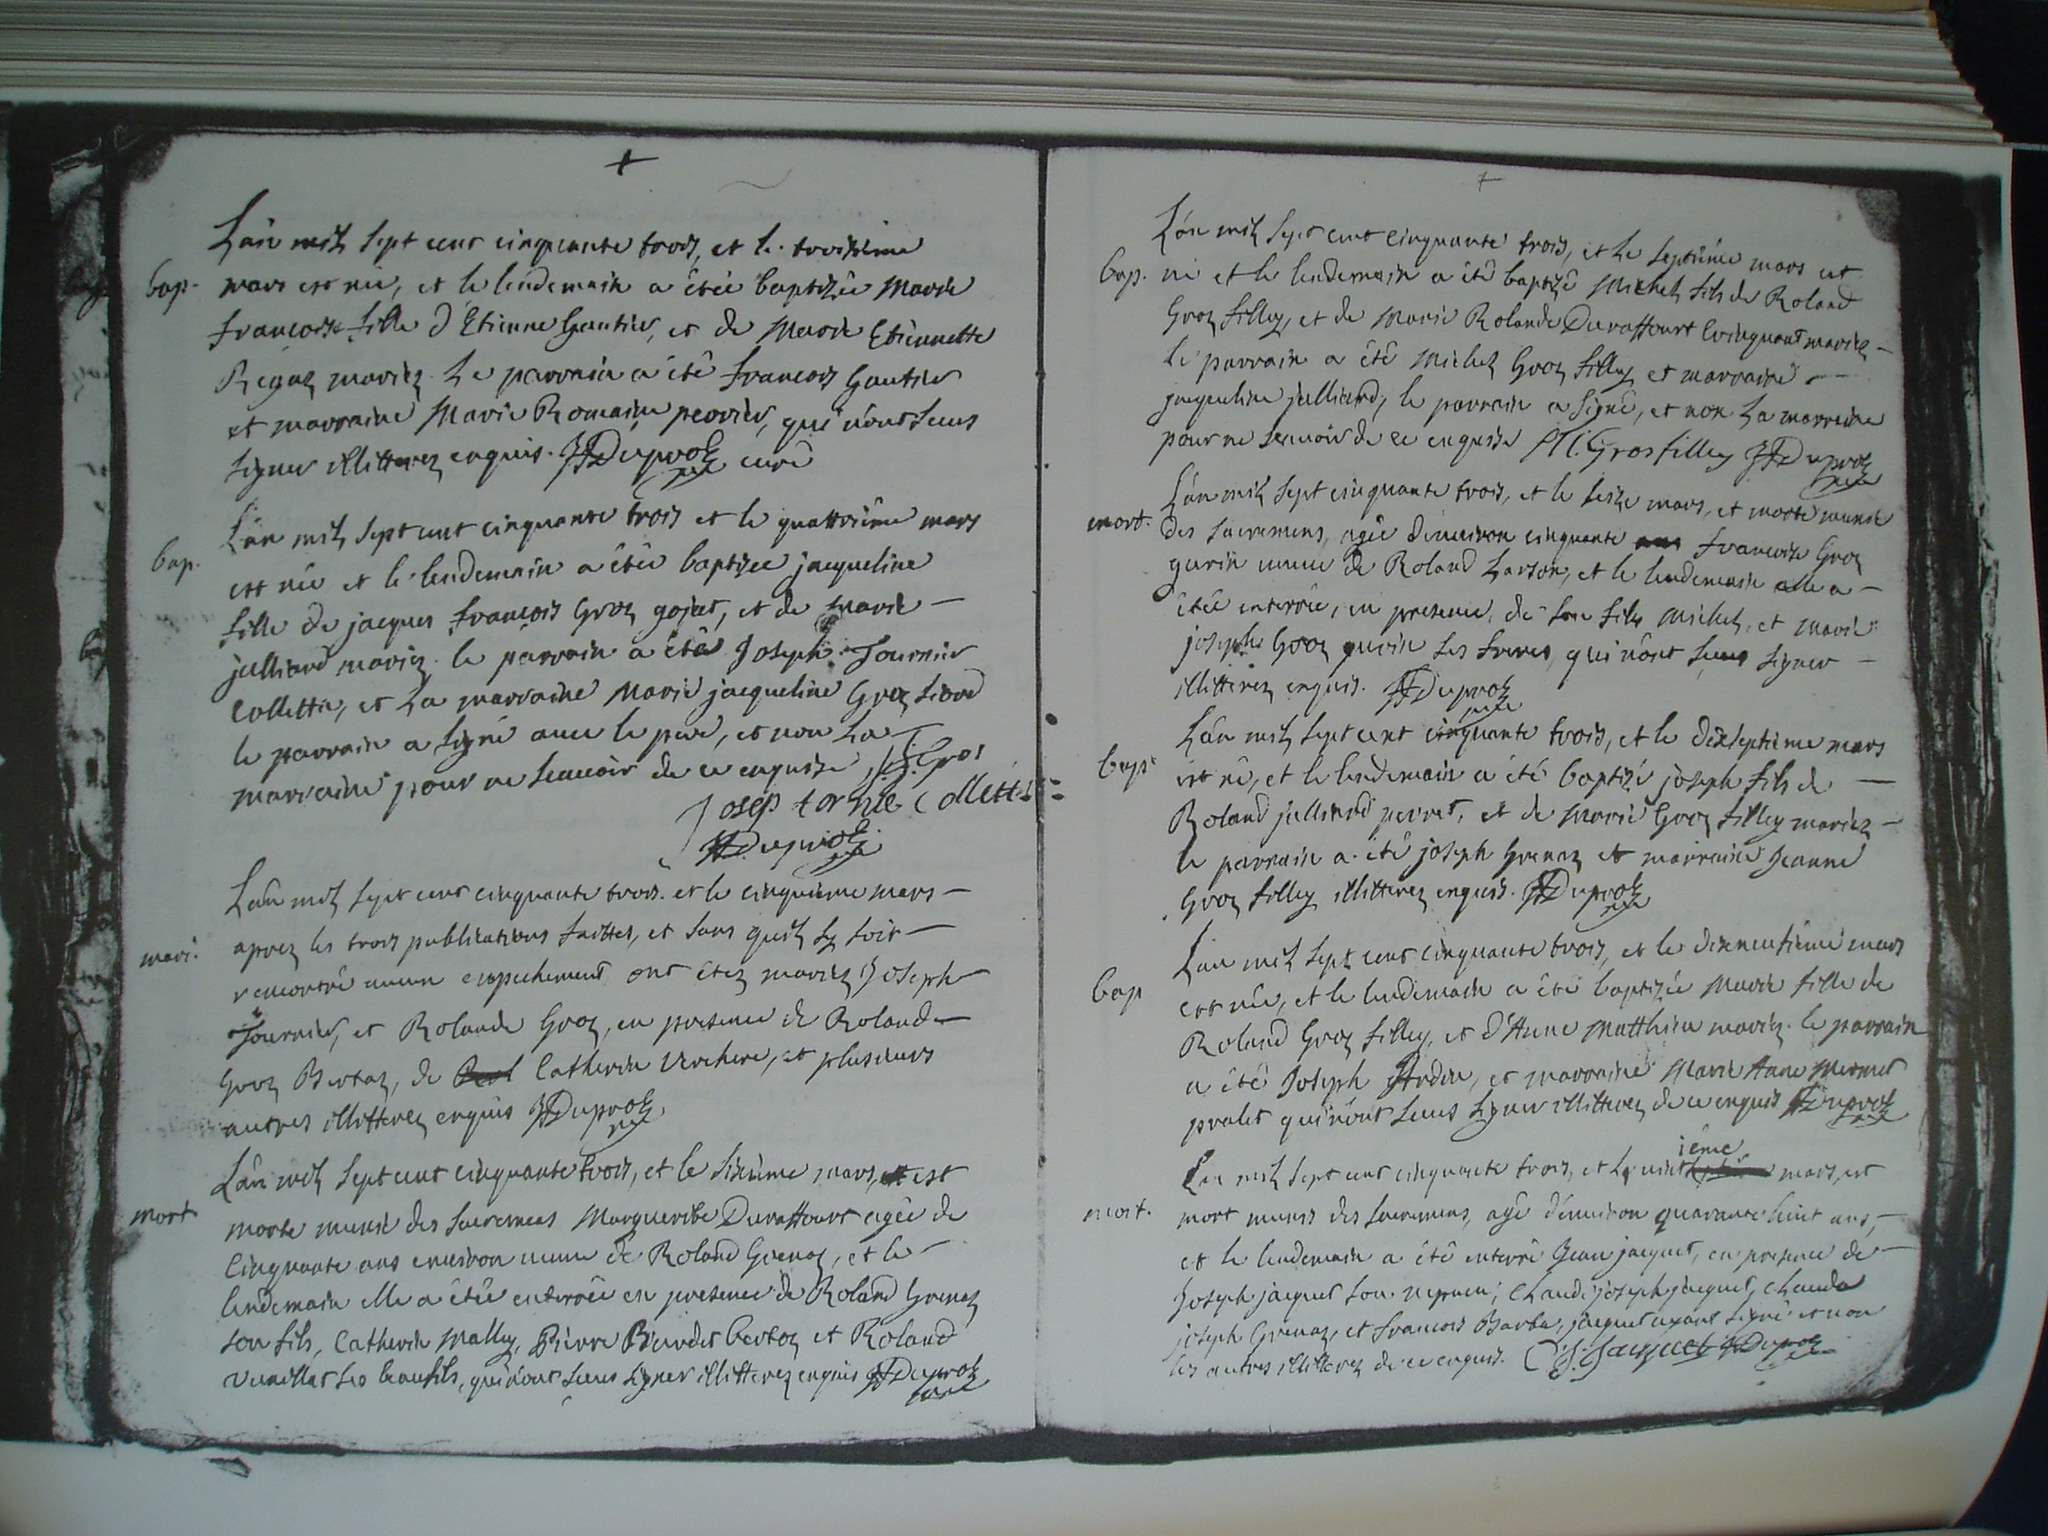 L'an mil sept cent cinquante trois, et le troisième
bap. mars est née, et le lendemain a étée baptizée Marie
francoise fille d'Etienne Gautier, et de Marie Etiennette
Regaz mariez. Le parrain a été francois Gautier
et marraine Marie Romaine perrier, qui n'ont sceus
signer illitterez enquis. JFDuproz curé
L'an mil sept cent cinquante trois et le quattrième mars
bap. est née et le lendemain a étée baptizee jacqueline
fille de jacques françois Groz gojat, et de Marie —
julliard mariez. le parrain a été Joseph Tournier
Collettia, et La marraine Marie jacqueline Groz
le parrain a signé avec le pere, et non La
marraine pour ne scauoir de ce enquise J.f. Gros
Josep tornie Collette
JFDuproz
L'an mil sept cent cinquante trois. et le cinquième mars —
mari. aprez les trois publications faittes, et sans quil sy soit —
rencontré aucun empechement ont étez mariez Joseph —
Tournier, et Rolande Groz, en presence de Roland —
Groz Bertaz, de Catherin Verchere, et plusieurs
autres illitterez enquis JFDuproz
L'an mil sept cent cinquante trois, et le sixième mars, est
mort morte munie des sacremens Marguerite Duraffourt agée de
Cinquante ans environ veuve de Roland Grenaz, et le —
lendemain elle a étée enterrée en presence de Roland Grenaz
son fils, Catherin Malley, Pierre Bertoz et Roland
Vuaillat ses beaufils, qui n'ont sceus signer illitterez enquis JFDuproz
L'an mil sept cent cinquante trois, et le septième mars est
bap. né et le lendemain a été baptizé Michel fils de Roland
Groz filley, et de Marie Rolande Duraffourt mariez —
le parrain a été Michel Groz filley et marraine —
jacqueline julliard, le parrain a signé, et non La marraine
pour ne scauoir de ce enquise M. Grosfilley JFDuproz
L'an mil sept cinquante trois, et le seize mars, et morte munie
mort. des sacremens, agée d'environ cinquante francoise Groz
gurin veuve de Roland Larson, et le lendemain elle a —
étée enterrée, en presence, de son fils Michel, et Marie
joseph Groz gurin ses freres, qui n'ont sceus signer —
illitterez enquis. JFDuproz
L'an mil sept cent cinquante trois, et le dixseptième mars
bap. est né, et le lendemain a été baptizé joseph fils de —
Roland julliard perret, et de Marie Groz filley mariez —
le parrain a été joseph Grenaz et marraine Jeanne
Groz filley illitterez enquis. JFDuproz
L'an mil sept cent cinquante trois, et le dixneufième mars
bap est née, et le lendemain a été baptizée Marie fille de
Roland Groz filley, et d'Anne Matthieu mariez. le parrain
a été Joseph, et marraine Marie Anne Mermet
pralet qui n'ont sceus signer illitterez de ce enquis JFDuproz
ième
L'an mil sept cent cinquante trois, et le vint mars, est
mort. mort munis des sacremens, agé d'environ quarante huit ans, —
et le lendemain a été enterré Jean jacquet, en presence de —
Joseph jacquet son nepveu, Claude joseph jacquet, Claude
joseph Grenaz, et francois Barbe, jacquet ayant signé et non
les autres illitterez de ce enquis. C.J. Jacquet JFDuproz